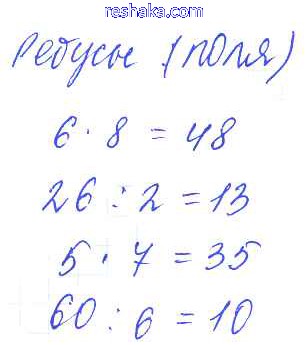 reshaka.com
Ребусы (поля)
6 · 8 = 48
26 : 2 = 13
5 · 7 = 35
60 : 6 = 10